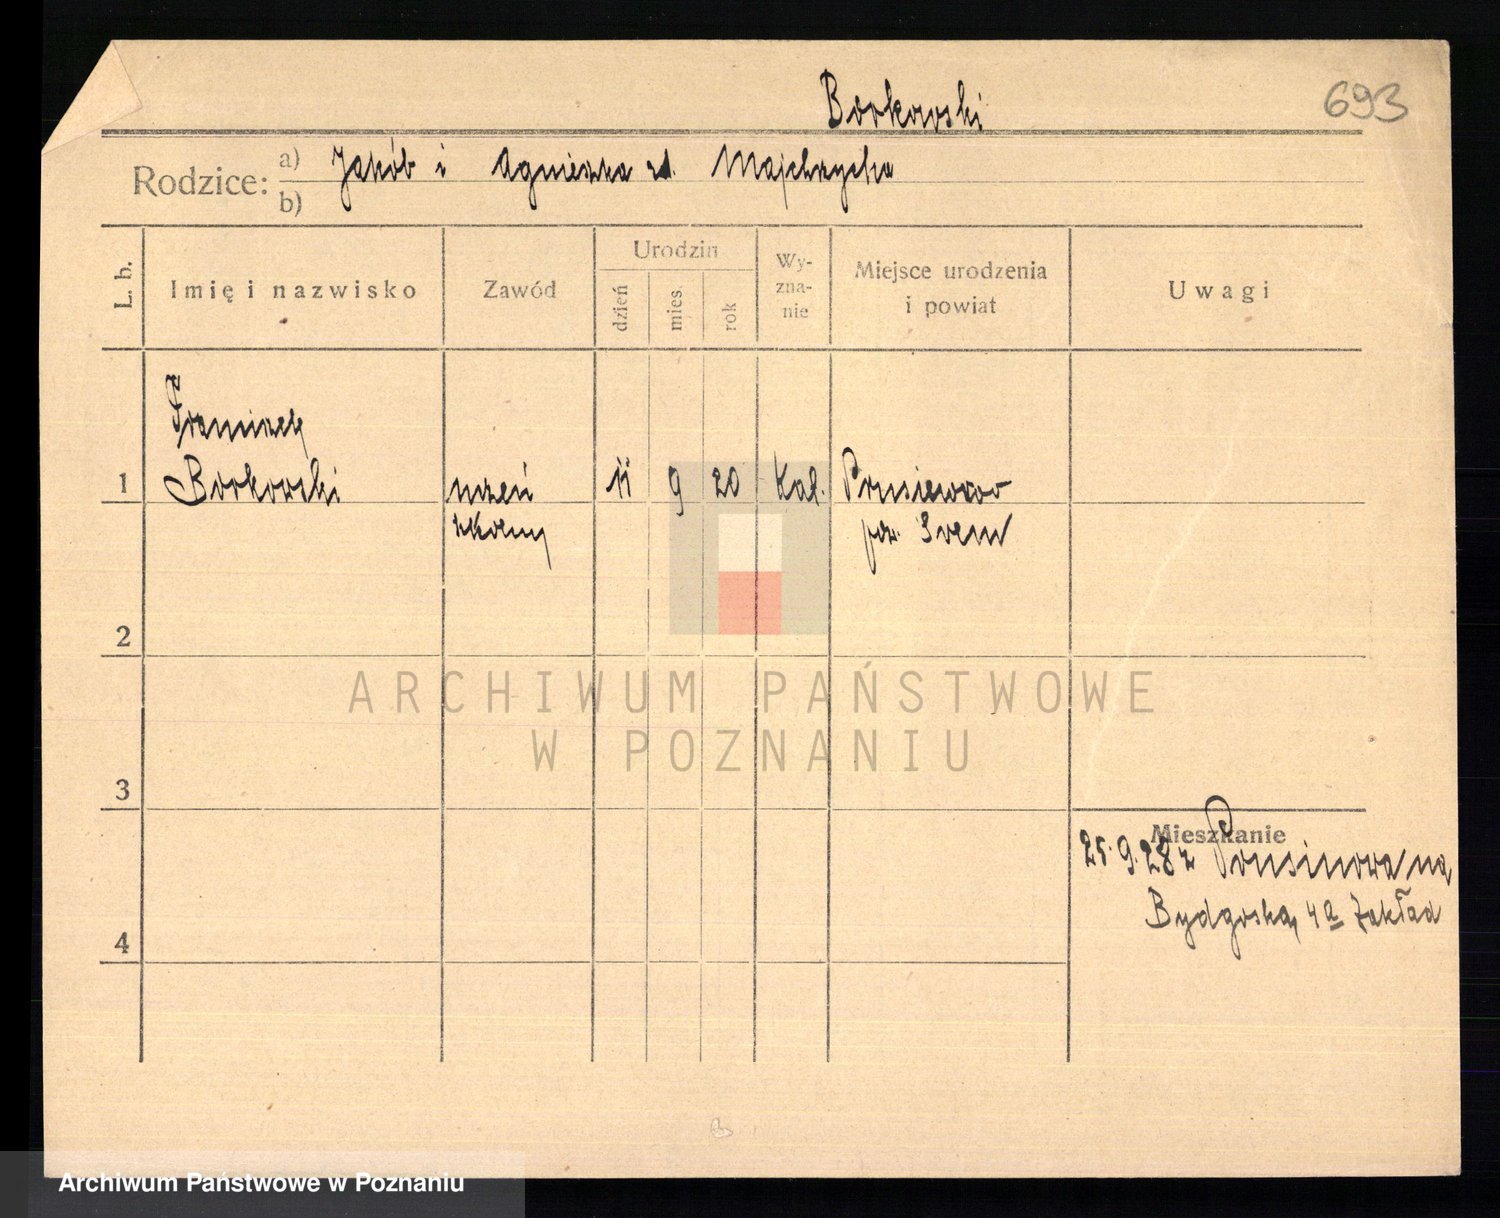 Borkowski
693
Rodzice: a) Jakób i Agnieszka zd. Majchrzycka
b)
L. b.
Imię i nazwisko
Zawód
Urodzin
dzień
mies.
rok
Wy-
zna-
nie
Miejsce urodzenia
i powiat
Uwagi
Franciszek
1 Borkowski uczeń 11 9 20 kat.
szkolny pow. Śrem
2
ARCHIWUM PAŃSTWOWE
W POZNANIU
3
Mieszkanie
25.9.28 z
Bydgoska 4a Zakład
4
Archiwum Państwowe w Poznaniu